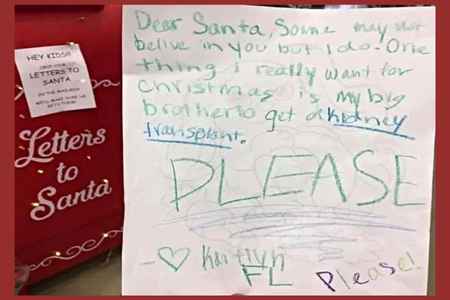 HEY KIDS!
DROP YOUR
LETTERS TO
SANTA
IN THE MAILBOX
Letters
to
Santa
Dear Santa, Some may not
belive in you but I do. One
thing i really want for
christmas is my big
brother to get a kidney
transplant.
PLEASE
- ♡ Kaitlyn
FL Please!